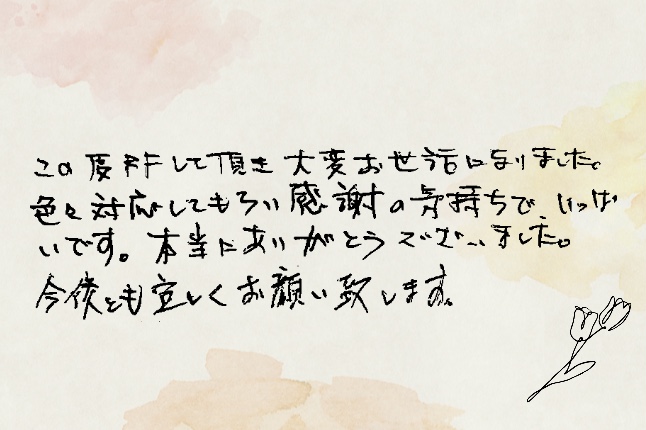 この度はして頂き大変お世話になりました。
色々対応してもらい感謝の気持ちで、いっぱ
いです。本当にありがとうございました。
今後とも宜しくお願い致します。